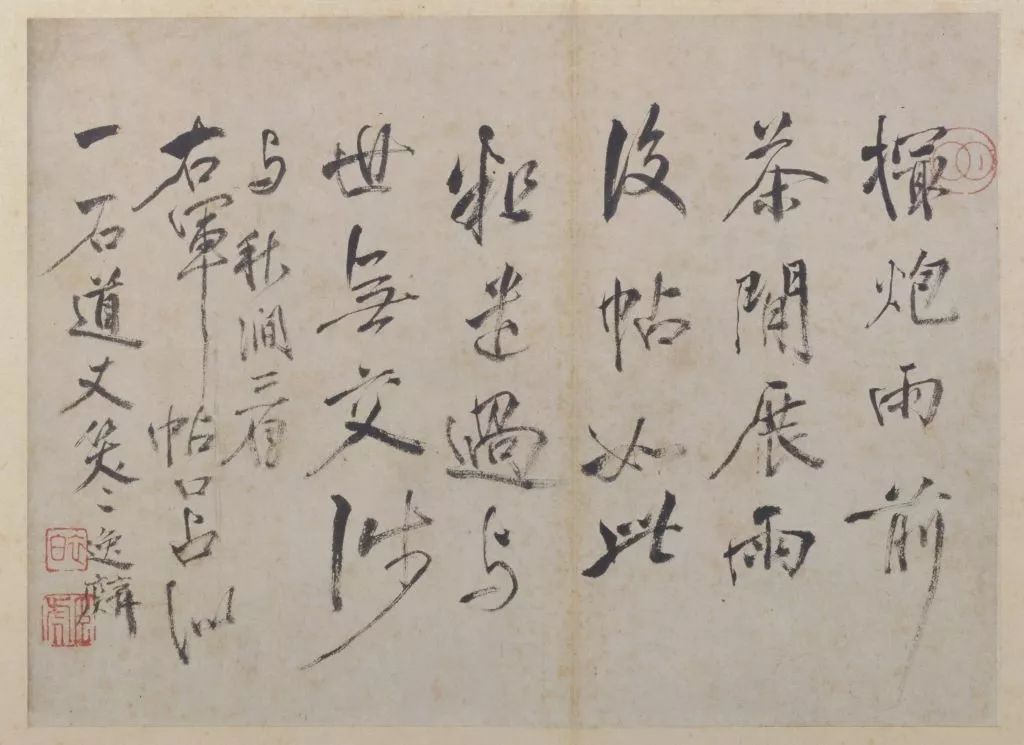 撮炮雨前
茶閒展雨
後帖如此
粗過与
世無交涉
与秋澗三看
右軍帖口占似
一石道丈笑〻逸